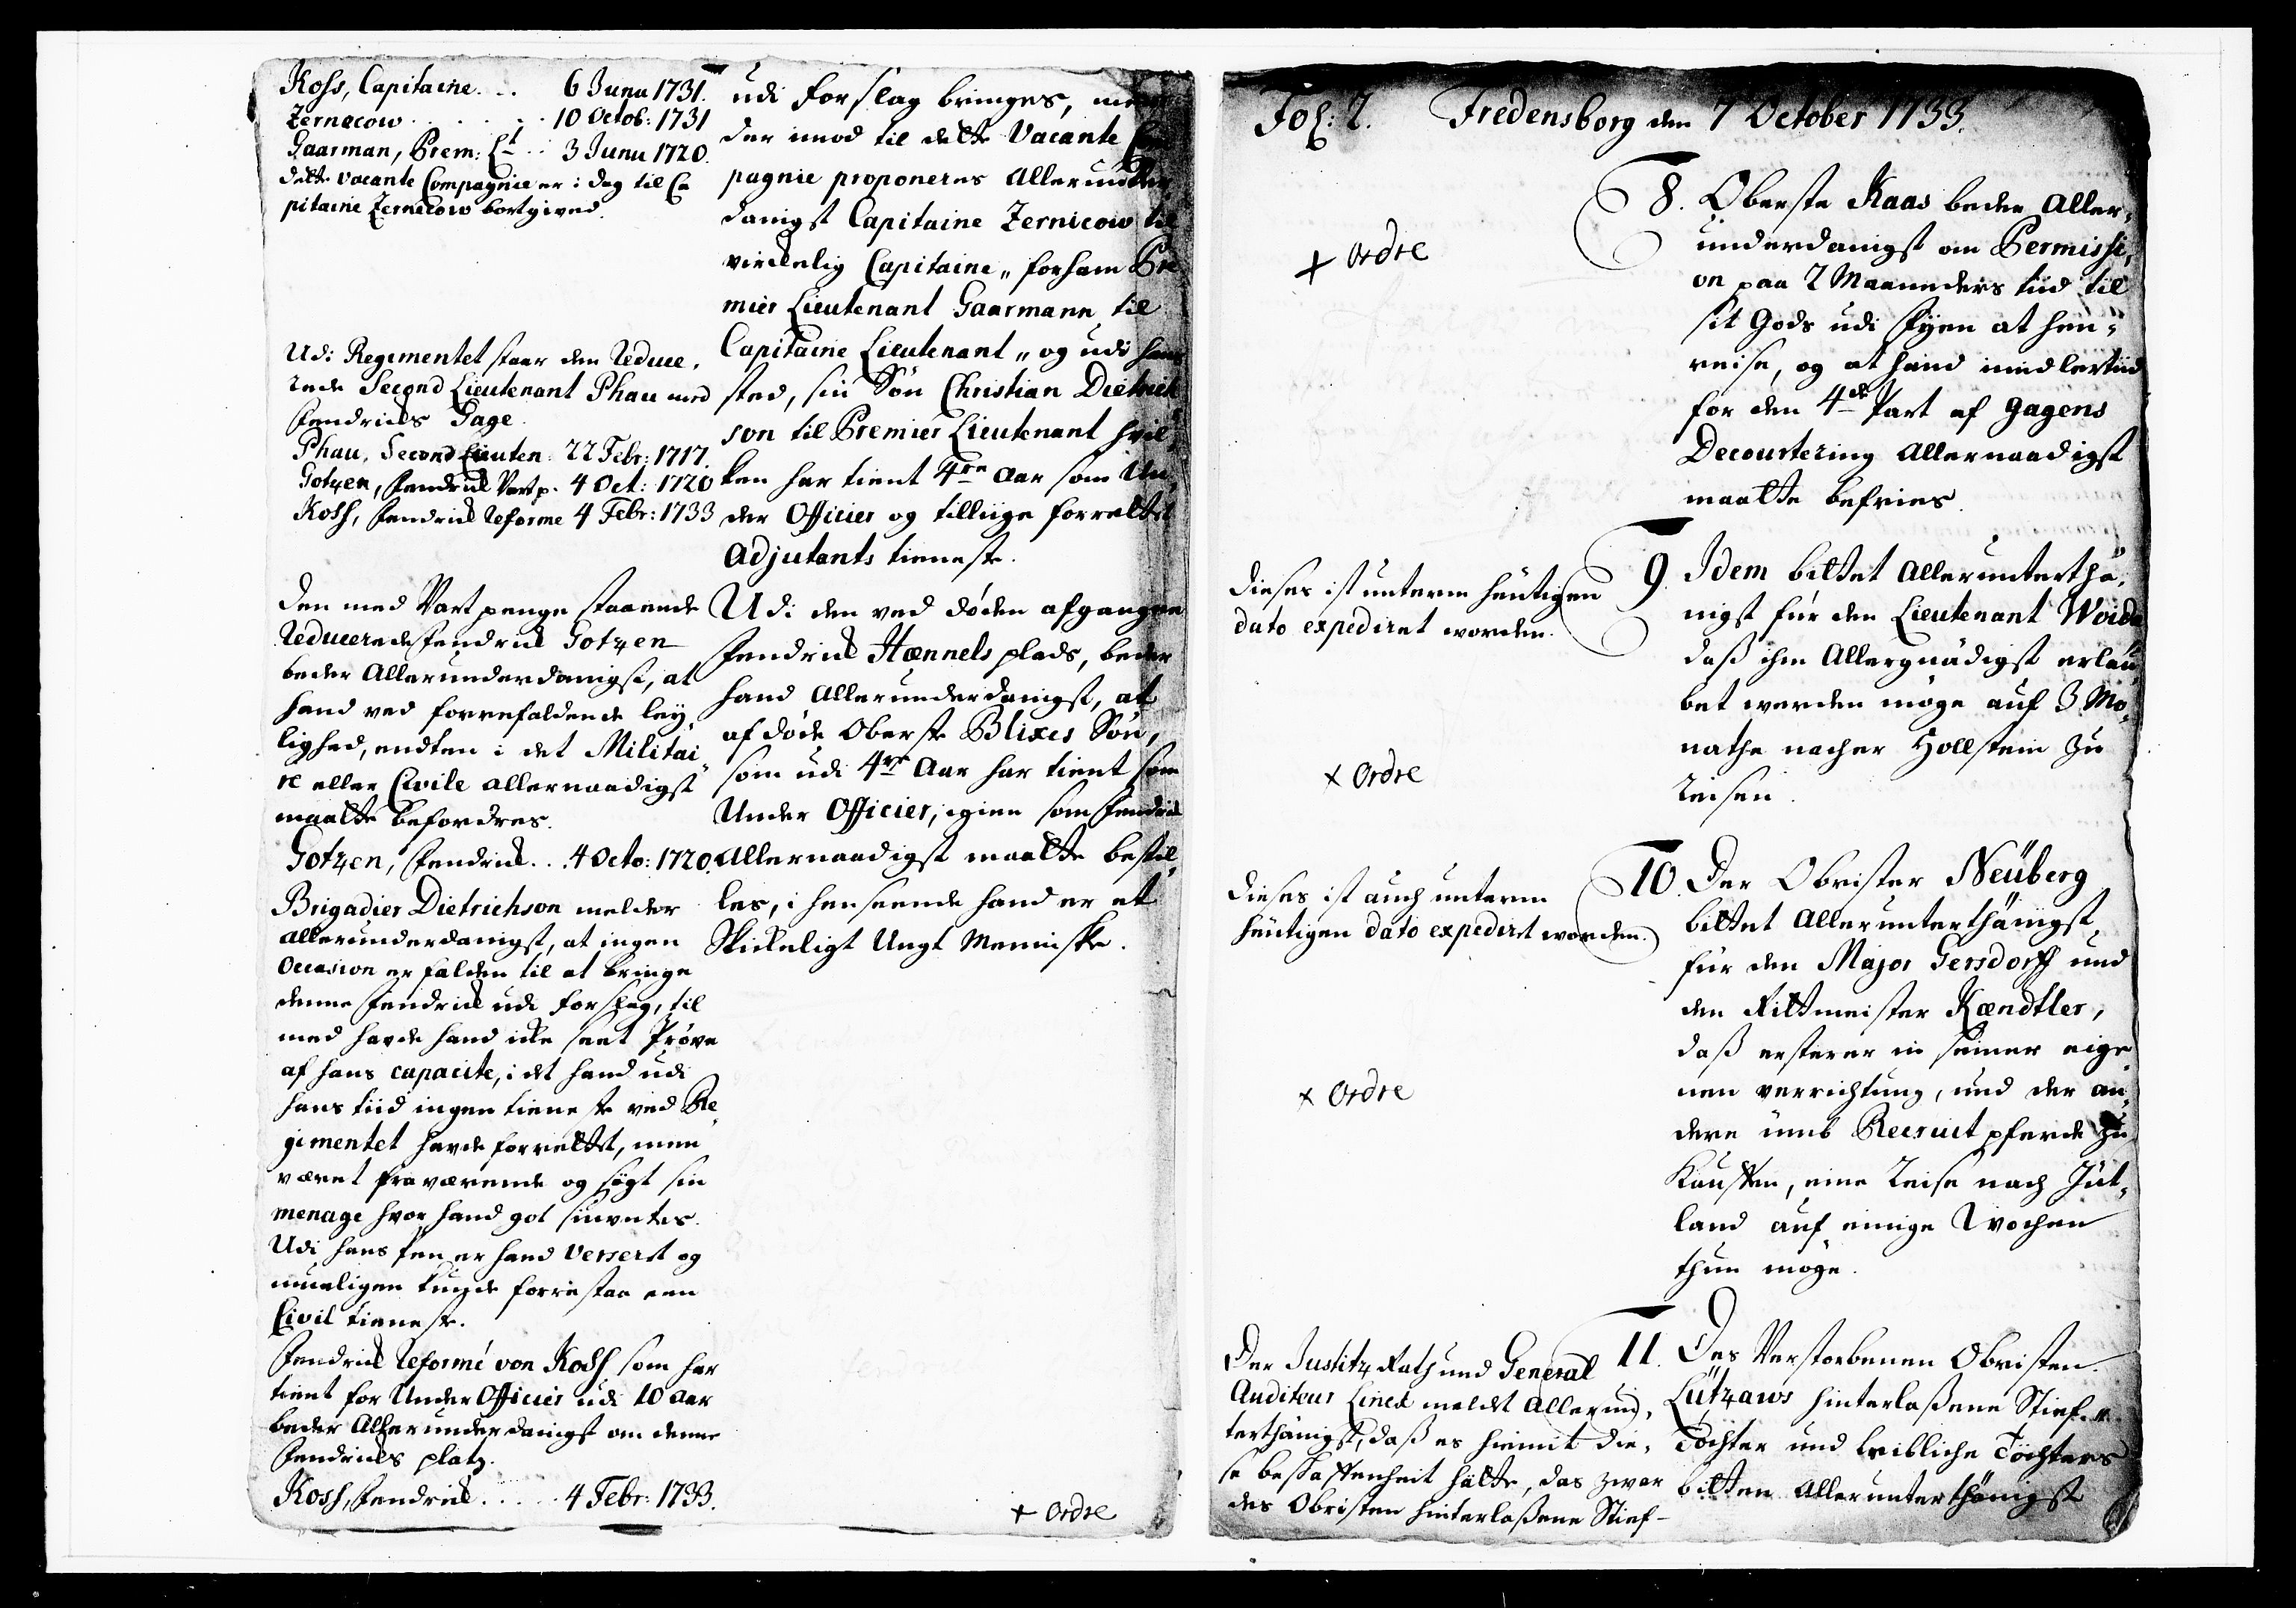 Koss, Capitaine. . . 6 Junii 1731.
Zernecow . . . . . 10 Octob: 1731
Gaarman, Prem: Lt . . 3 Junii 1720.
dette vacante Compagnie er i dag til Ca
pitaine Zernicow bortgived.
Udi Regimentet staar den Reduce,
rede Second Lieutenant Phau med
Fendrichs Gage.
Phau, Second Lieuten: 22 Febr: 1717.
Gotzen, Fendrich Vartp. 4 Oct: 1720
Koss, Fendrich Reforme 4 Febr: 1733
Den med Vartpenge staaende
Reducerede Fendrich Gotzen
beder Allerunderdanigst, at
hand ved forrefaldende ley,
lighed, endten i det Militai,
re eller Civile allernaadigst
maatte befordres.
Gotzen, Fendrich. . . 4 Octo: 1720.
Brigadier Dietrichson melder
allerunderdanigst, at ingen
Occasion er falden til at bringe
denne Fendrich udi forslag, til
med havde hand icke seet Prøve
af hans capacite, i det hand udi
hans tiid ingen tieneste ved Re,
gimentet havde forrettet, men
været fraværende og søgt sin
menage hvor hand got siuntes.
Udi hans fen er hand Verseret og
mueligen kunde forrestaa een
Civil tieneste.
Fendrich Reformé von Koss som har
tient for Under Officier udi 10 Aar
beder Allerunderdanigst om denne
Fendrichs platz.
Koss, Fendrich . . . . . 4 Febr: 1733.
udi forslag bringes, men
der imod til dette Vacante Com
pagnie proponeres Allerunder
danigst Capitaine Zernicow til
virckelig Capitaine,, for ham Pre
mier Lieutenant Gaarmann til
Capitaine Lieutenant,, og udi hans
sted, sin Søn Christian Dietrich
son til Premier Lieutenant hvil,
ken har tient 4re Aar som Un,
der Officier og tilliige forrettet
Adjutants tieneste.
Udi den ved døden afgangne
Fendrich Hænnels plads, beder
hand allerunderdanigst, at
afdøde Oberste Blixes Søn,
som udi 4re Aar har tient som
Under Officier, igien som Fendrich
Allernaadigst maatte bestil,
les, i henseende hand er et
Skickeligt Ungt Menniske.
+ Ordre
Fol: 2. Fredensborg den 7 October 1733.
8. Oberste Kaas beder Aller,
underdanigst om Permissi,
on paa 2 Maaneders tiid til
sit Gods udi Fyen at hen,
reise, og at hand imidlertiid
for den 4de Part af gagens
Decourtering Allernaadigst
maatte befries.
+ Ordre
9. Idem bittet allerunterthä,
nigst für den Lieutenant Woida
daß ihm Allergnädigst erlau,
bet werden möge auf 3 Mo,
nathe nacher Hollstein zu
reisen.
Dieses ist unterm heutigen
dato expediret worden.
+ Ordre
10. Der Obrister Neuberg
bittet Allerunterthänigst,
für den Major Gersdorff und
den Rittmeister Kændtler,
daß ersterer in seiner eige
nen verrichtung, und der an,
dere umb Recruit pferde zu
Kauffen, eine Reise nach Jüt,
land auf einige Wochen
thun möge.
Dieses ist auch unterm
heutigen dato expediret worden.
+ Ordre
11. Des Verstorbenen Obristen
Lützaws hinterlaßene Stief-
Töchter und leibliche Töchters
bitten Allerunterthänigst
Der Justitz Rath und General
Auditeur Linck meldet Allerun,
terthänigst, daß es hiemit die,
se beschaffenheit hätte, das zwar
des Obristen hinterlaßene Stief-